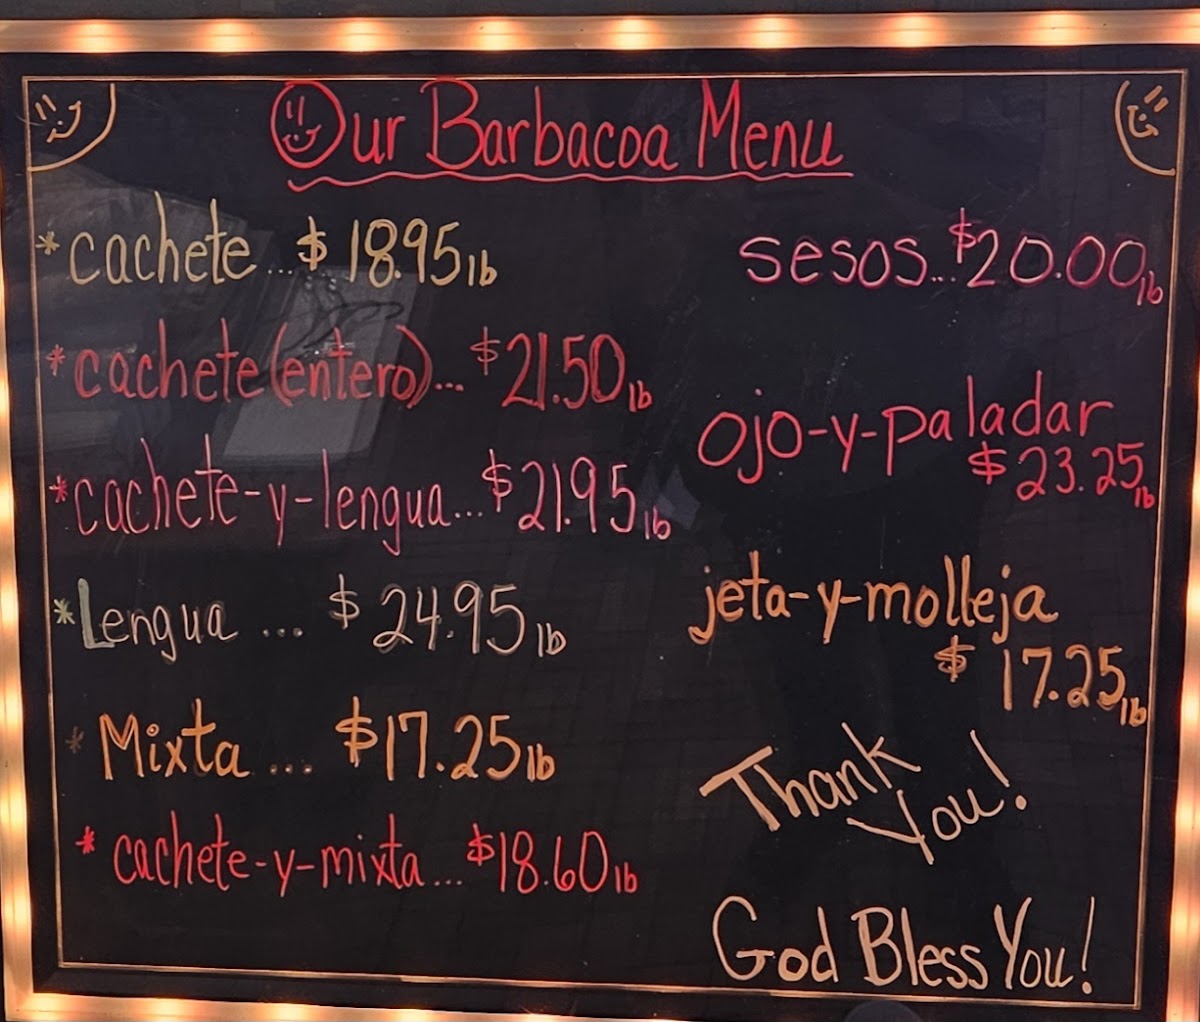 Our Barbacoa Menu
*cachete...$ 18.95 lb
*cachete(entero)...$21.50 lb
*cachete-y-lengua...$21.95 lb
*Lengua ... $ 24.95 lb
* Mixta ... $17.25 lb
* cachete-y-mixta... $18.60 lb
sesos...$20.00 lb
ojo-y-paladar
$ 23.25 lb
jeta-y-molleja
$ 17.25 lb
Thank
You!
God Bless You!